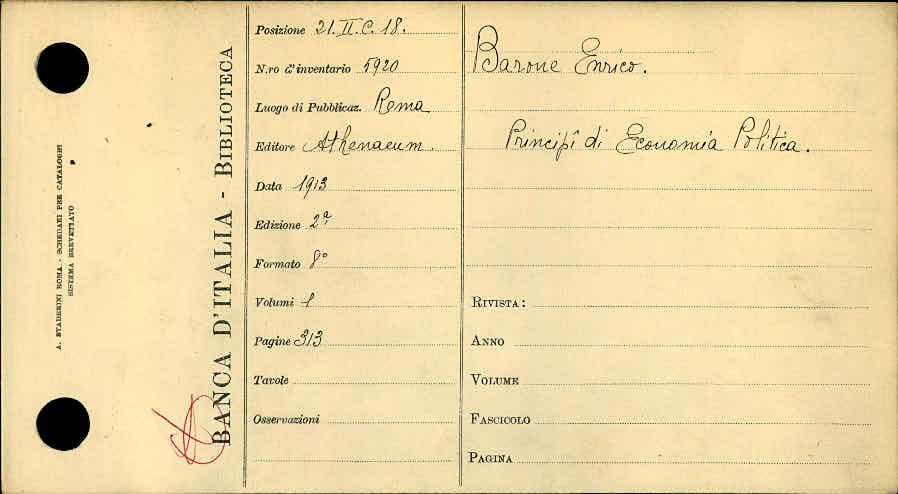 A. STADERINI ROMA. - SCHEDARI PER CATALOGHI
SISTEMA BREVETTATO
BANCA D'ITALIA - BIBLIOTECA
Posizione 21. II. C. 18.
N.ro d'inventario 5920
Luogo di Pubblicaz. Roma
Editore Athenaeum.
Data 1913
Edizione 2ª
Formato 8º
Volumi 1
Pagine 313
Tavole
Osservazioni
Barone Enrico.
Principî di Economia Politica.
RIVISTA:
ANNO
VOLUME
FASCICOLO
PAGINA